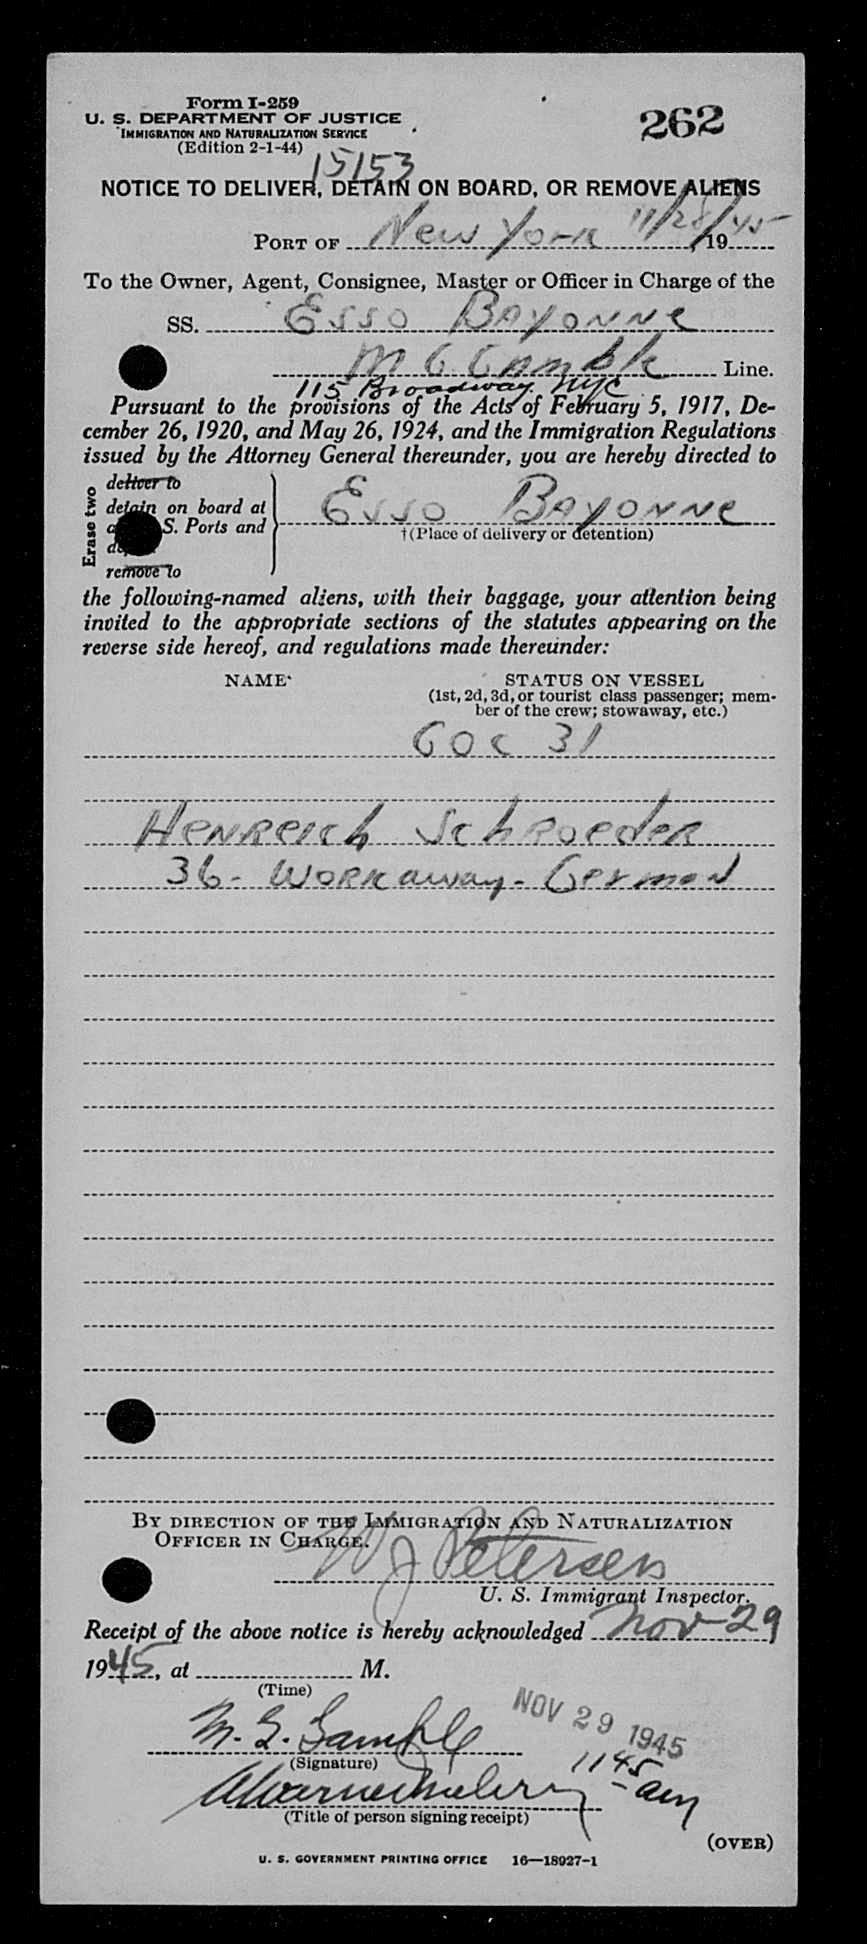 Form I-259
U. S. DEPARTMENT OF JUSTICE
IMMIGRATION AND NATURALIZATION SERVICE
(Edition 2-1-44)
262
15153
NOTICE TO DELIVER, DETAIN ON BOARD, OR REMOVE ALIENS
PORT OF New York 11/28/45, 19
To the Owner, Agent, Consignee, Master or Officer in Charge of the
SS. Esso Bayonne
M G Gamble Line.
115 Broadway NYC
Pursuant to the provisions of the Acts of February 5, 1917, De-
cember 26, 1920, and May 26, 1924, and the Immigration Regulations
issued by the Attorney General thereunder, you are hereby directed to
Erase two
deliver to
detain on board at
S. Ports and
remove to
Esso Bayonne
†(Place of delivery or detention)
the following-named aliens, with their baggage, your attention being
invited to the appropriate sections of the statutes appearing on the
reverse side hereof, and regulations made thereunder:
NAME
STATUS ON VESSEL
(1st, 2d, 3d, or tourist class passenger; mem-
ber of the crew; stowaway, etc.)
GOC 31
Henreich Schroeder
36 - Workaway - German
BY DIRECTION OF THE IMMIGRATION AND NATURALIZATION
OFFICER IN CHARGE.
W J Petersen
U. S. Immigrant Inspector.
Receipt of the above notice is hereby acknowledged Nov 29
1945, at M.
(Time)
NOV 29 1945
M. G. Gamble
1145 am
(Signature)
(Title of person signing receipt)
(OVER)
U. S. GOVERNMENT PRINTING OFFICE 16—18927-1